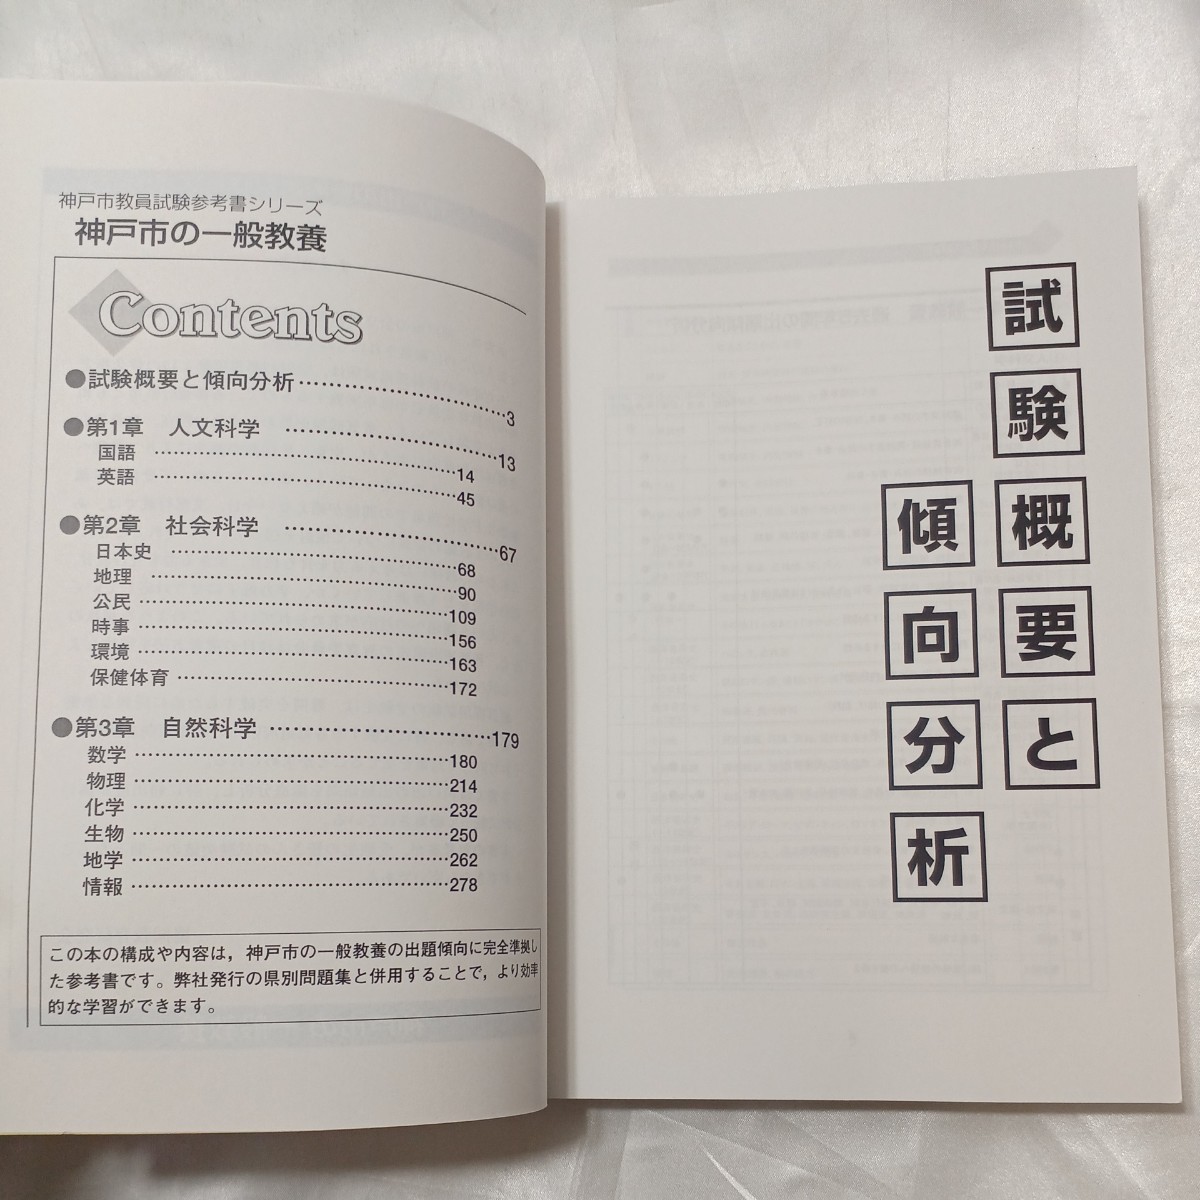 神戸市教員試験参考書シリーズ
神戸市の一般教養
Contents
●試験概要と傾向分析……………………3
●第1章　人文科学……………………13
国語……………………14
英語……………………45
●第2章　社会科学……………………67
日本史……………………68
地理……………………90
公民……………………109
時事……………………156
環境……………………163
保健体育……………………172
●第3章　自然科学……………………179
数学……………………180
物理……………………214
化学……………………232
生物……………………250
地学……………………262
情報……………………278
この本の構成や内容は，神戸市の一般教養の出題傾向に完全準拠し
た参考書です。弊社発行の県別問題集と併用することで，より効率
的な学習ができます。
試験概要と
傾向分析